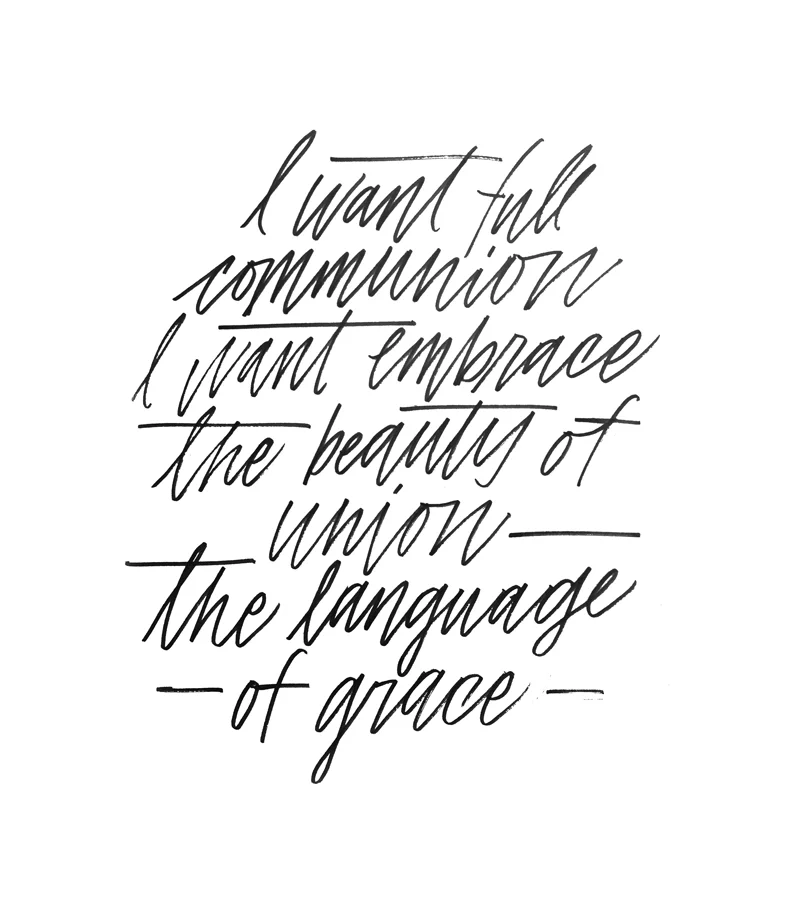 I want full
communion
I want embrace
the beauty of
union —
the language
— of grace —